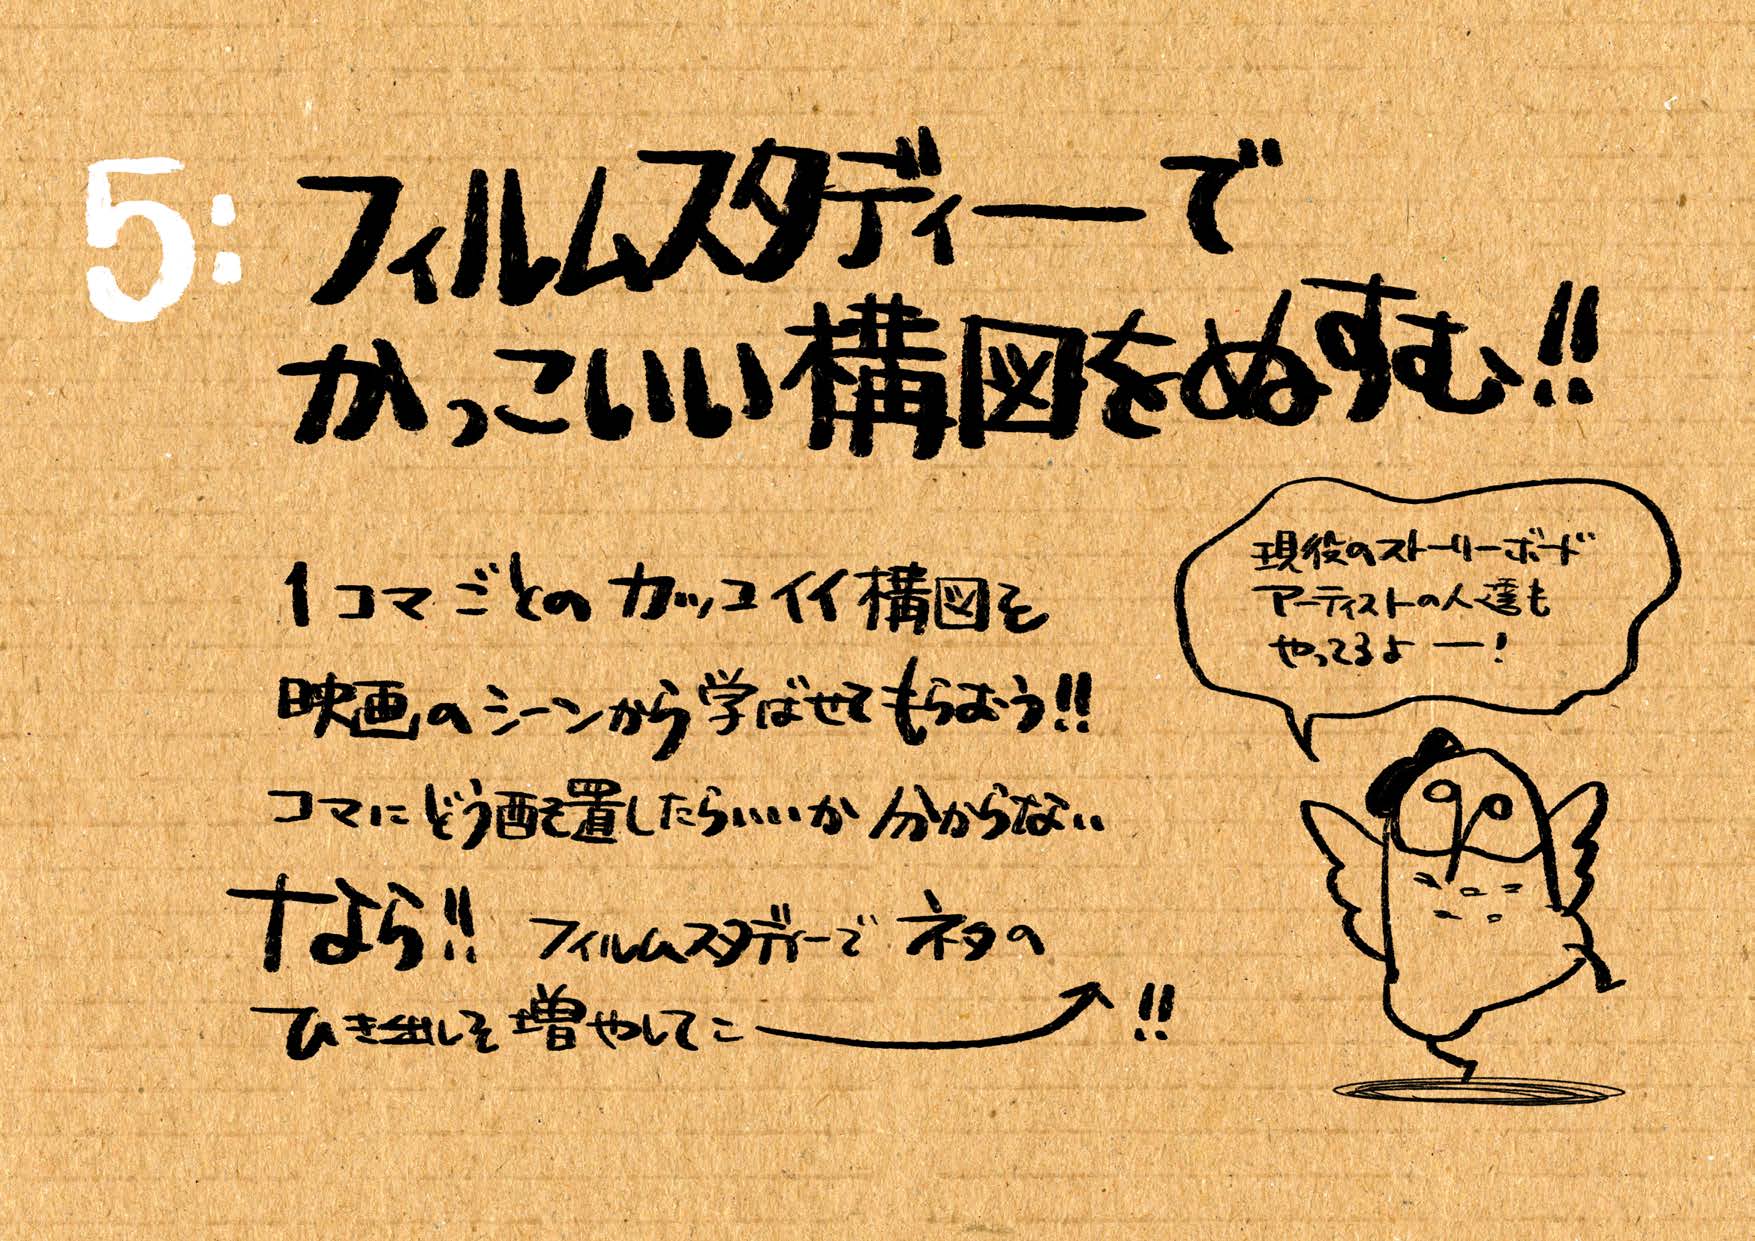 5: フィルムスタディーで
かっこいい構図をぬすむ!!
1コマごとのカッコイイ構図を
映画のシーンから学ばせてもらおう!!
コマにどう配置したらいいか分からない
なら!! フィルムスタディーでネタの
ひき出しを増やしてこー!!
現役のストーリーボード
アーティストの人達も
やってるよー!